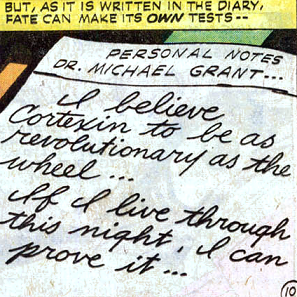 BUT, AS IT IS WRITTEN IN THE DIARY,
FATE CAN MAKE ITS OWN TESTS--
PERSONAL NOTES
DR. MICHAEL GRANT...
I believe
Cortexin to be as
revolutionary as the
wheel...
If I live through
this night, I can
prove it...
10